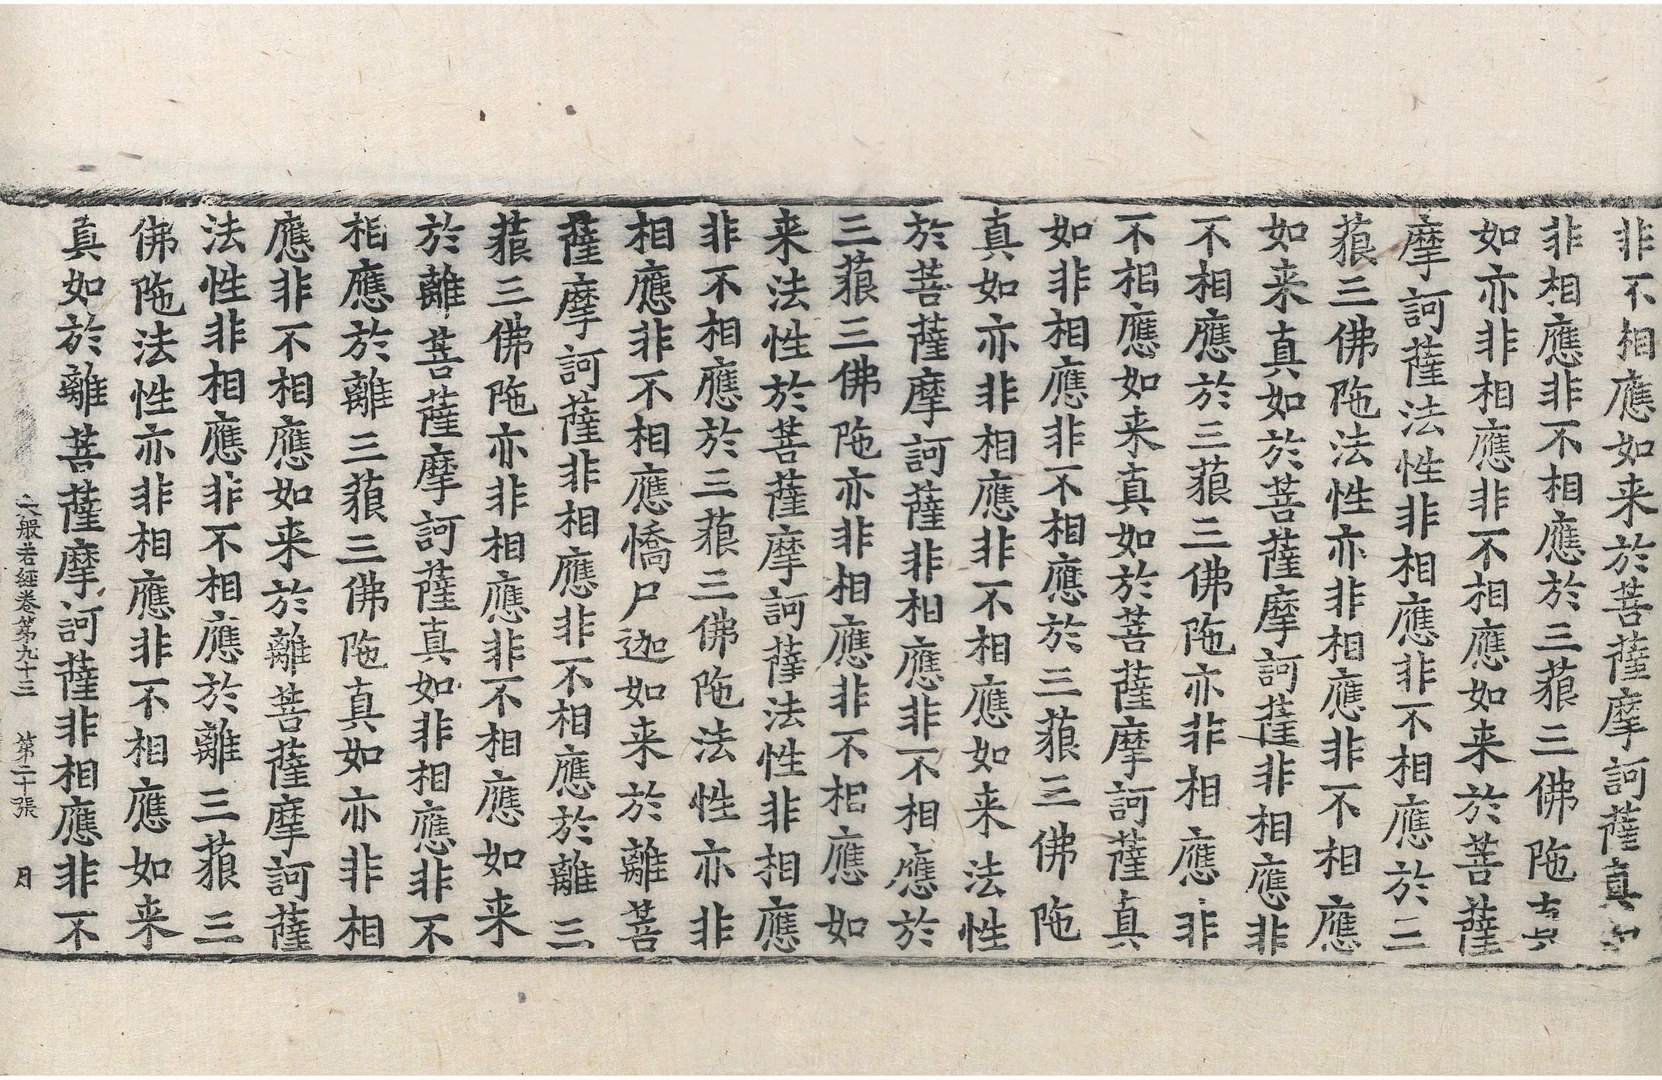 非不相應如来於菩薩摩訶薩真如
非相應非不相應於三藐三佛陁真
如亦非相應非不相應如来於菩薩
摩訶薩法性非相應非不相應於三
藐三佛陁法性亦非相應非不相應
如来真如於菩薩摩訶薩非相應非
不相應於三藐三佛陁亦非相應非
不相應如来真如於菩薩摩訶薩真
如非相應非不相應於三藐三佛陁
真如亦非相應非不相應如来法性
於菩薩摩訶薩非相應非不相應於
三藐三佛陁亦非相應非不相應如
来法性於菩薩摩訶薩法性非相應
非不相應於三藐三佛陁法性亦非
相應非不相應憍尸迦如来於離菩
薩摩訶薩非相應非不相應於離三
藐三佛陁亦非相應非不相應如来
於離菩薩摩訶薩真如非相應非不
相應於離三藐三佛陁真如亦非相
應非不相應如来於離菩薩摩訶薩
法性非相應非不相應於離三藐三
佛陁法性亦非相應非不相應如来
真如於離菩薩摩訶薩非相應非不
大般若經卷第九十三 第二十張 月